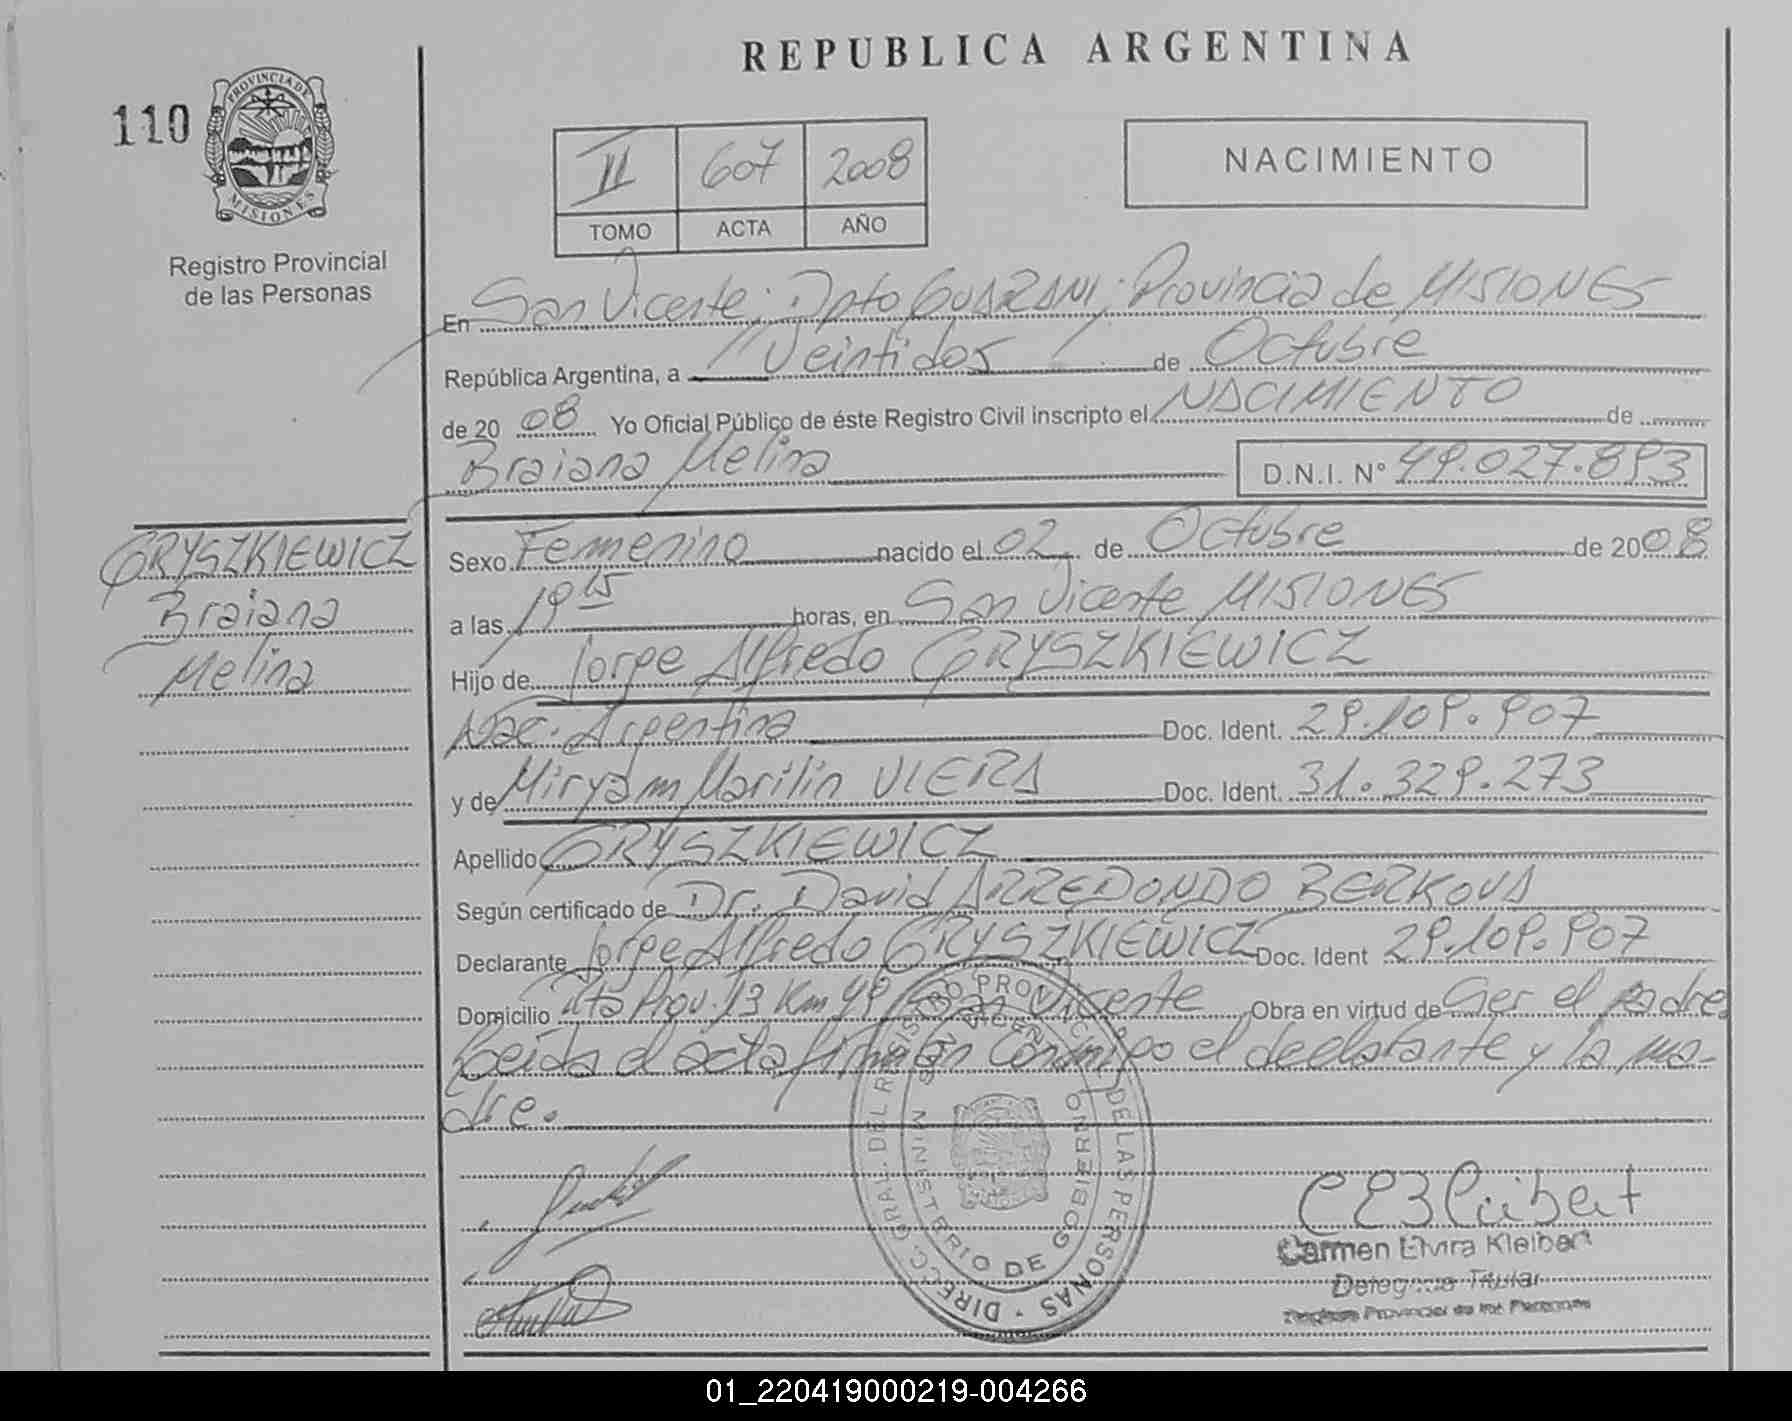 REPUBLICA ARGENTINA
110
PROVINCIA DE MISIONES
Registro Provincial
de las Personas
II 607 2008
TOMO ACTA AÑO
NACIMIENTO
En San Vicente; Dpto GUARANI; Provincia de MISIONES
República Argentina, a Veintidos de Octubre
de 2008 Yo Oficial Público de éste Registro Civil inscripto el NACIMIENTO de
Braiana Melina D.N.I. Nº 49.027.893
GRYSZKIEWICZ
Braiana
Melina
Sexo Femenino nacido el 02 de Octubre de 2008
a las 19 15 horas, en San Vicente MISIONES
Hijo de Jorge Alfredo GRYSZKIEWICZ
Nac. Argentina Doc. Ident. 29.109.907
y de Miryam Marilin VIERA Doc. Ident. 31.329.273
Apellido GRYSZKIEWICZ
Según certificado de Dr. David ARREDONDO BERKOVA
Declarante Jorge Alfredo GRYSZKIEWICZ Doc. Ident 29.109.907
Domicilio Ruta Prov. 13 Km 49 San Vicente Obra en virtud de Ser el padre
Leida el acta firman conmigo el declarante y la ma-
dre.
DIRECC. GRAL. DEL REGISTRO PROVINCIAL DE LAS PERSONAS
SAN VICENTE
MINISTERIO DE GOBIERNO
Carmen Elvira Kleibert
Delegada Titular
Registro Provincial de las Personas
01_220419000219-004266